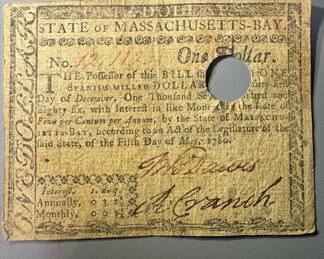 ONE DOLLAR
STATE OF MASSACHUSETTS-BAY.
No. One Dollar.
THE Possessor of this BILL ONE
SPANISH MILLED DOLLAR
Day of December, One Thousand Seven Hundred and
Eighty-six, with Interest in like Money at the Rate of
Five per Centum per Annum, by the State of MASSACHU-
SETTS-BAY, according to an Act of the Legislature of the
said State, of the Fifth Day of May, 1780.
Dawes
Interest.
Annually,
Monthly,
R. Cranch